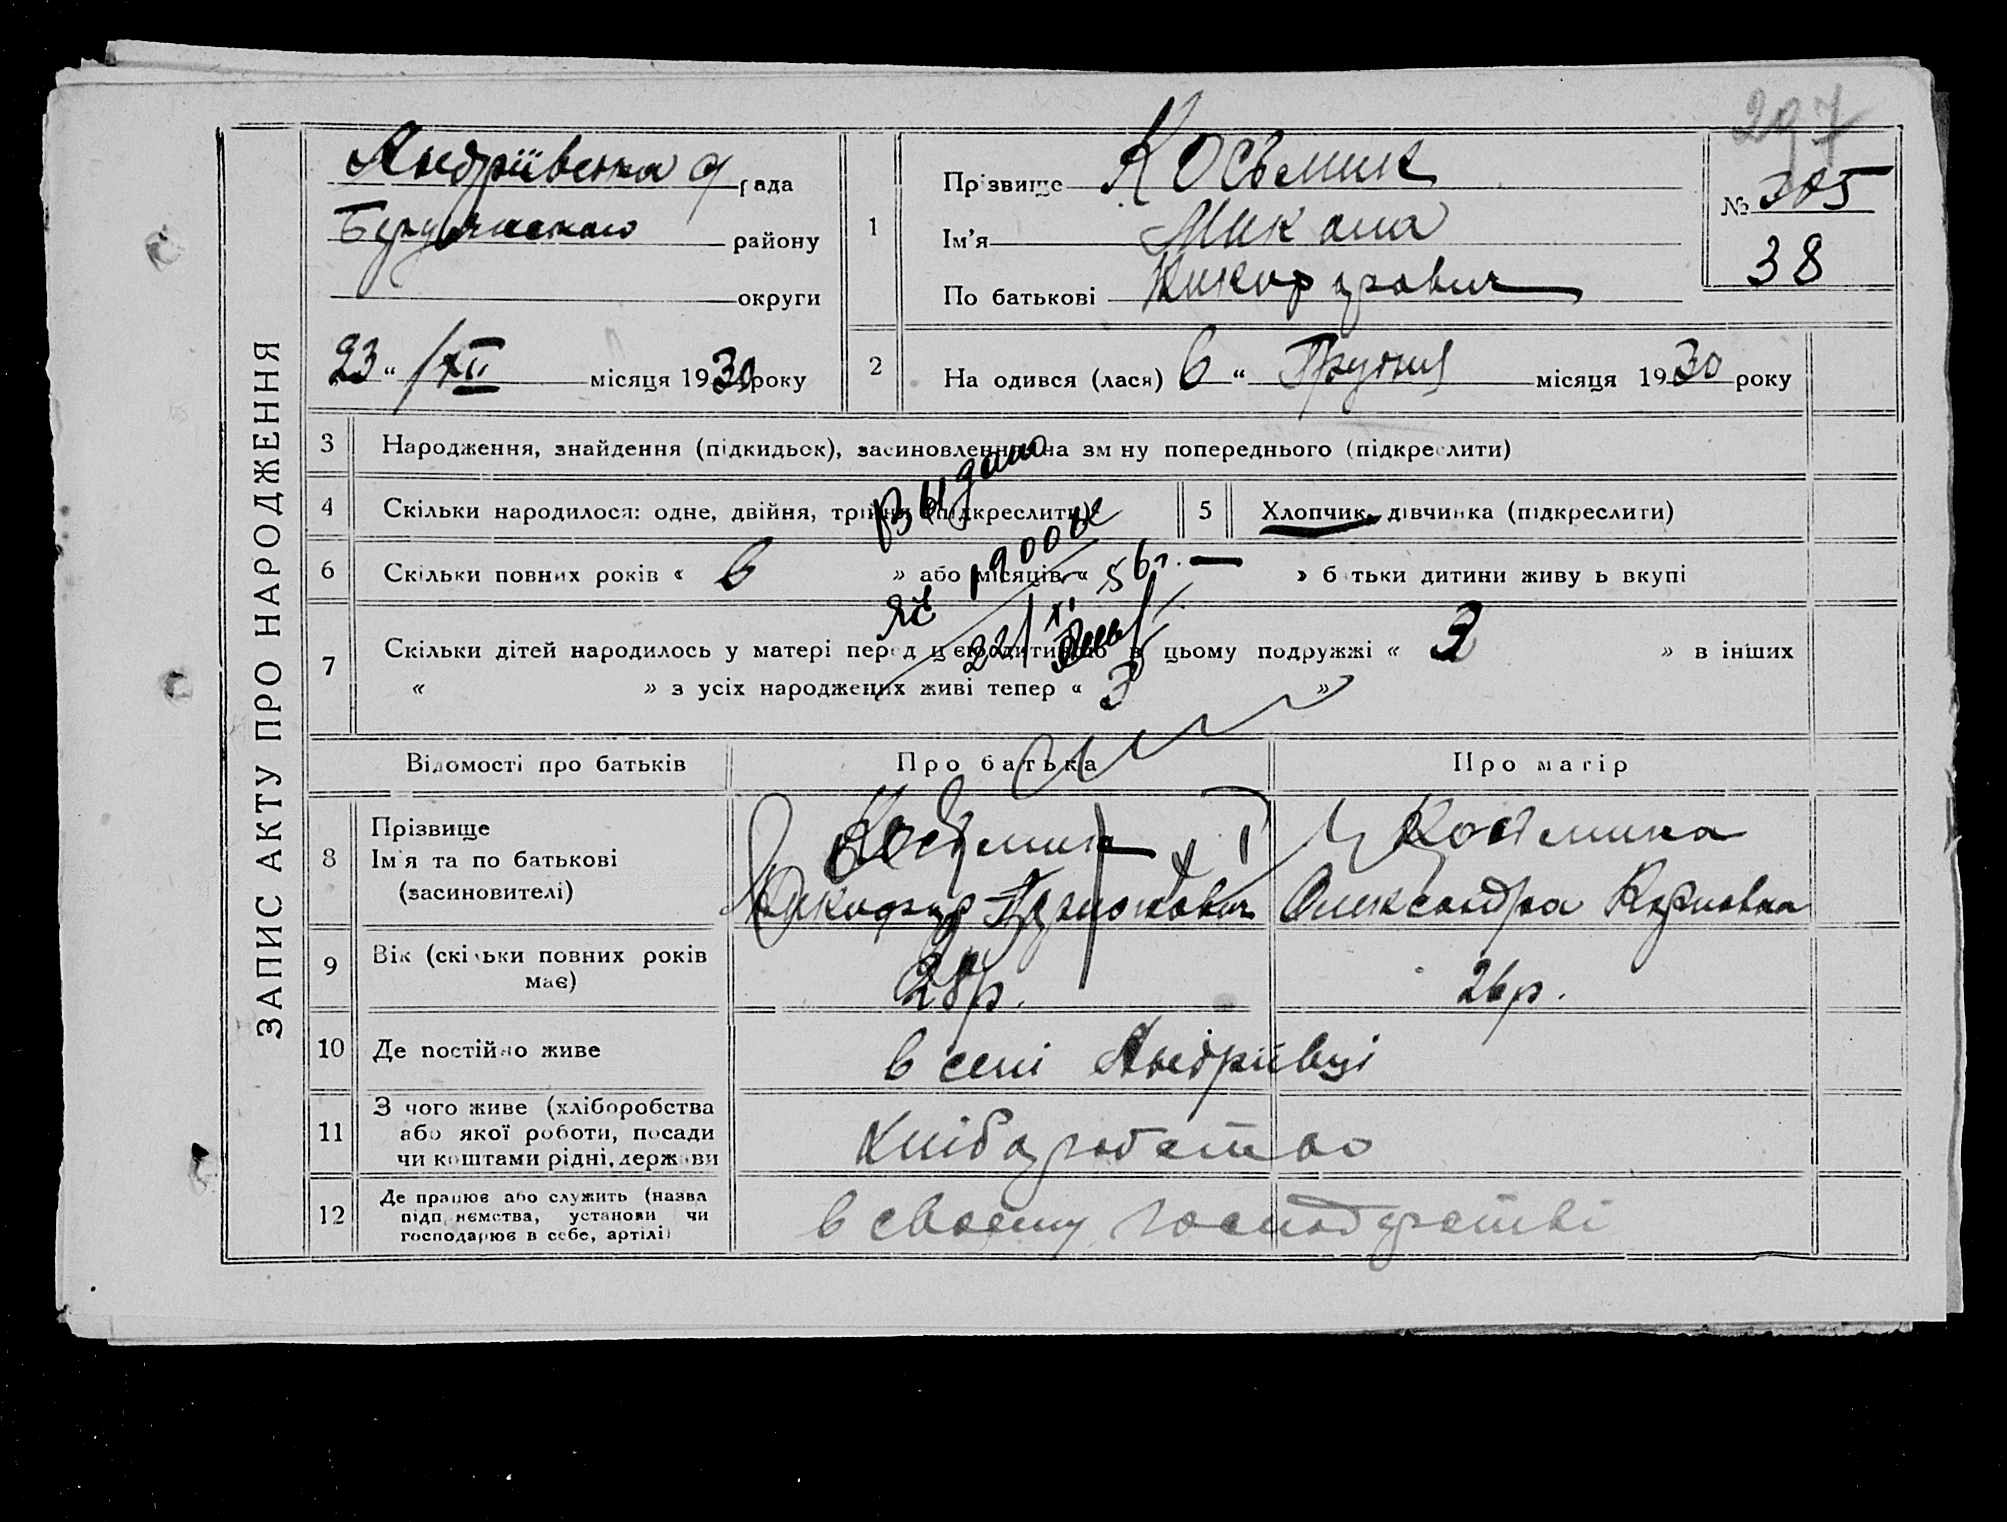 297
ЗАПИС АКТУ ПРО НАРОДЖЕННЯ
Андріївська с/рада
Бердянського району
округи
23 " /XII місяця 1930 року
1
Прізвище Косьмик
Ім'я Микола
По батькові
№ 305
38
2
На одився (лася) 6 " Грудня місяця 1930 року
3 Народження, знайдення (підкидьок), засиновлення на зм ну попереднього (підкреслити)
4 Скільки народилося: одне, двійня, трійня (підкреслити)
5 Хлопчик, дівчинка (підкреслити)
Выдано
6 Скільки повних років « 6 » або місяців « — » б тьки дитини живу ь вкупі
56 г.
22/XI
7 Скільки дітей народилось у матері перед цією дитиною в цьому подружжі « 3 » в інших
« » з усіх народжених живі тепер « 3 »
Відомості про батьків Про батька Про матір
8 Прізвище
Ім'я та по батькові
(засиновителі)
Косьмик
Косьмина
Олександра
9 Вік (скільки повних років
має)
28 р.
26 р.
10 Де постійно живе в селі Андріївці
11 З чого живе (хліборобства
або якої роботи, посади
чи коштами рідні, держави
хліборобство
12 Де працює або служить (назва
підприємства, установи чи
господарює в себе, артілі)
в своєму господарстві